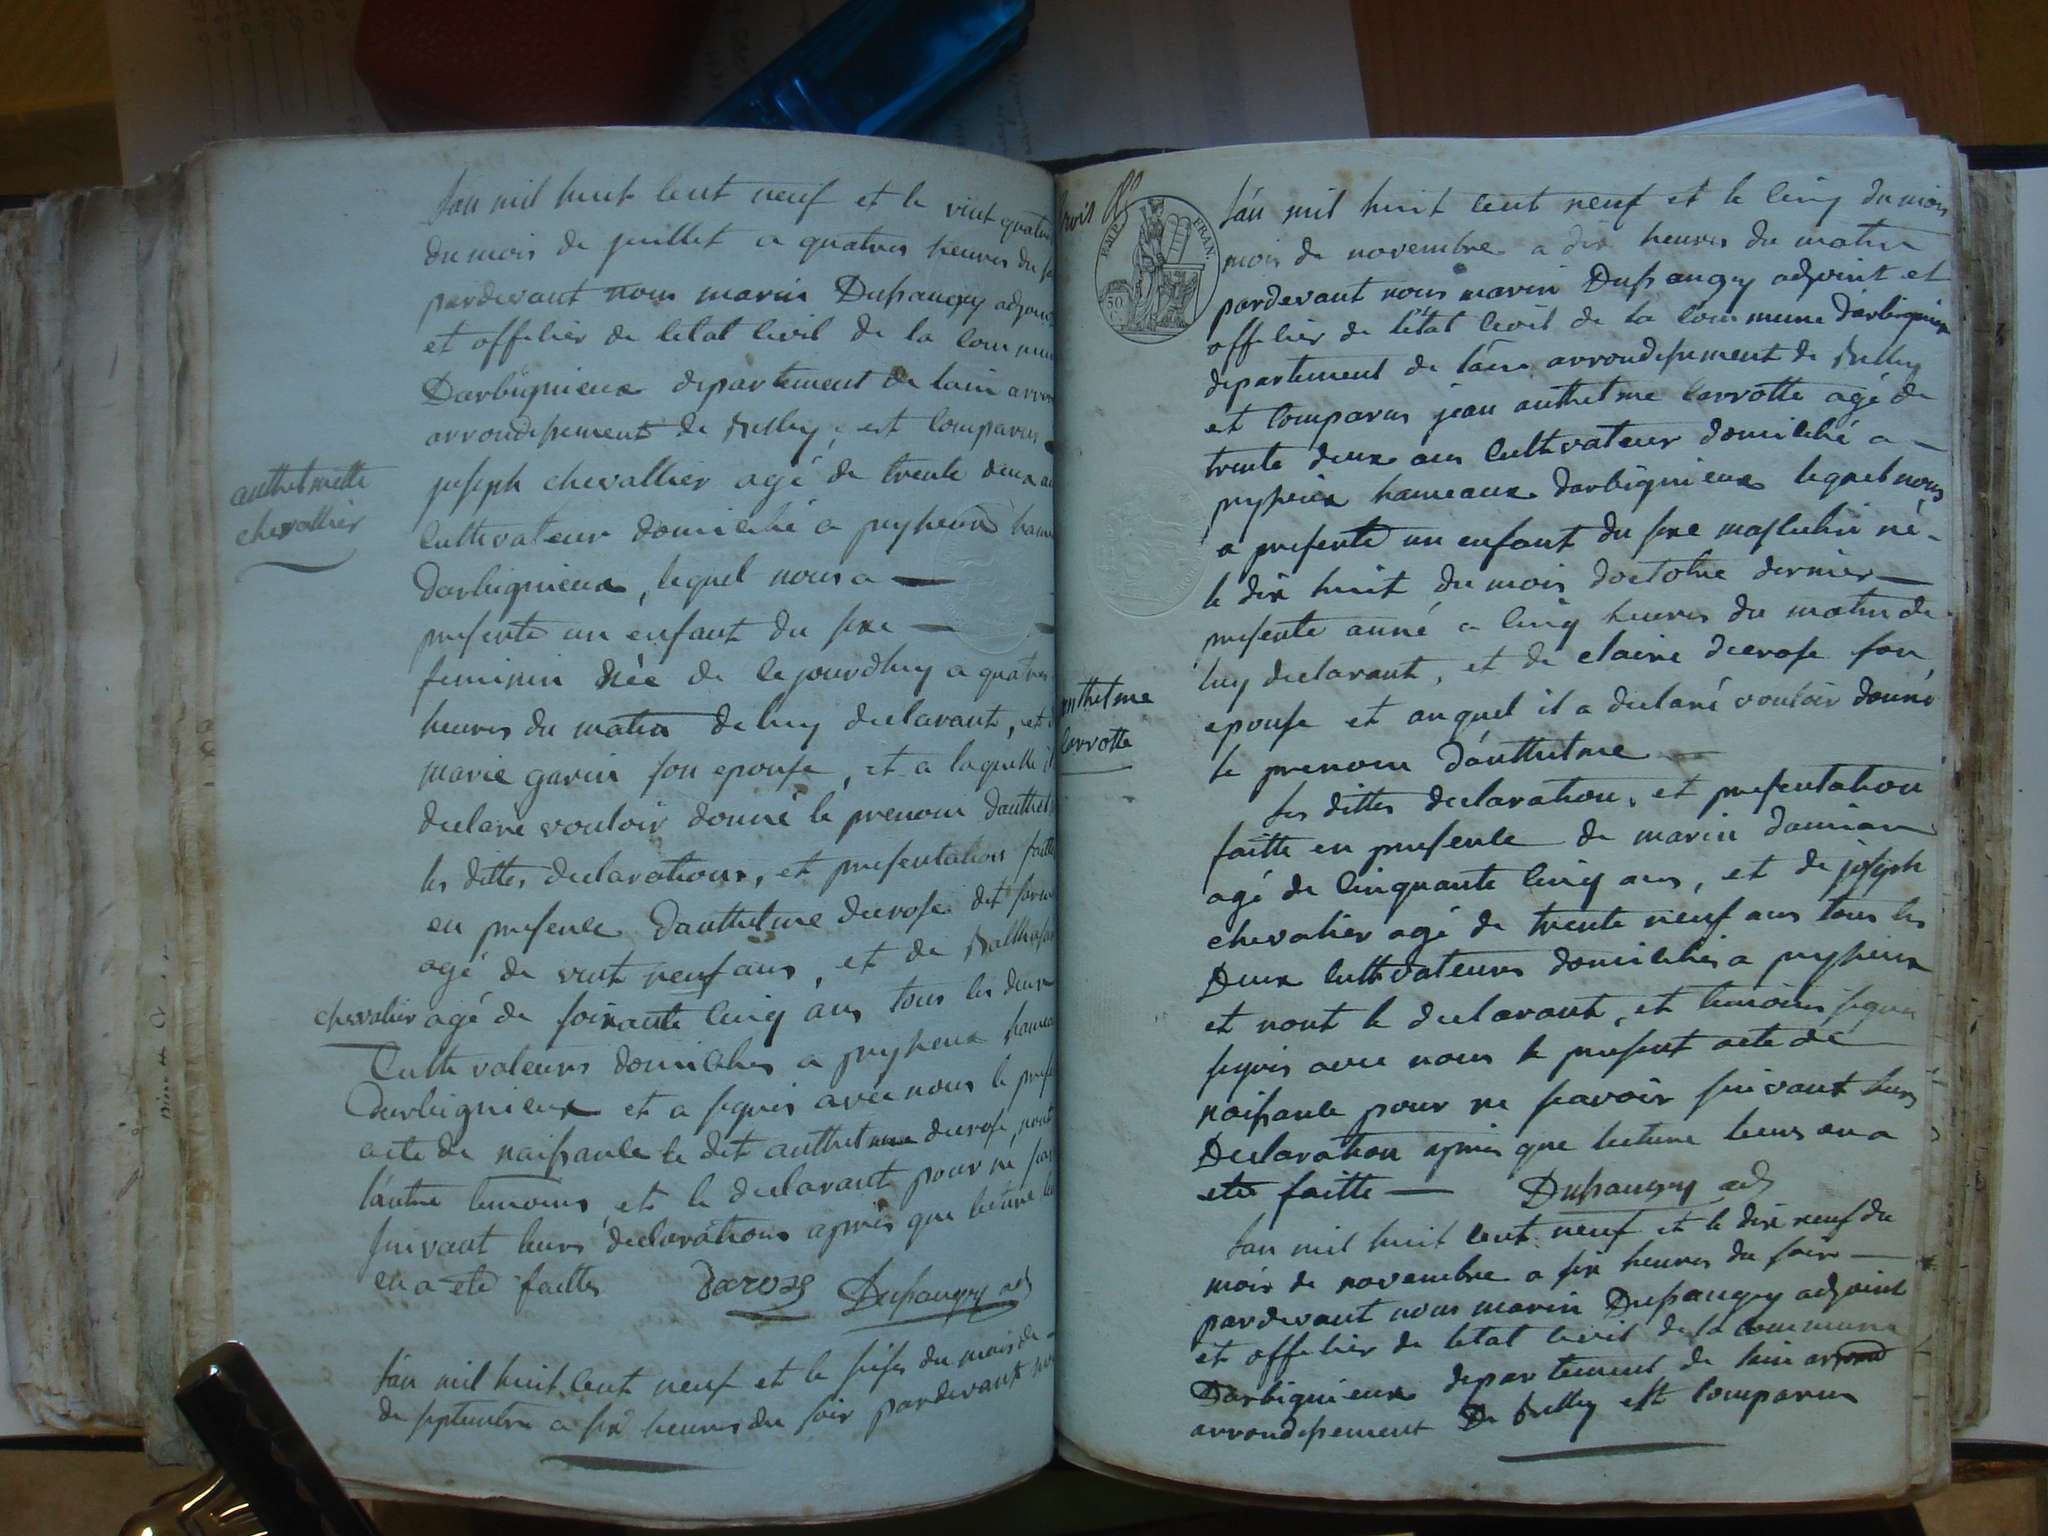 lan mil huit cent neuf et le vint quatre
du mois de juillet a quatres heures du
pardevant nous marin Dupaugey adjoint
et officier de letat civil de la commune
Darbignieux departement de lain
arrondissement de Belley, est comparus
anthelmette
chevallier
joseph chevallier agé de trente deux
cultivateur domicilié a peyzieux
Darbignieux, lequel nous a
presenté un enfant du sexe
feminin née de cejourdhuy a quatres
heures du matin de luy declarant, et
marie gavin son epouse, et a laquelle il
declaré vouloir donné le prenom
les dittes declarations, et presentation faitte
en presence danthelme decrose dit
agé de vint neuf ans, et de Balthasar
chevalier agé de soixante cinq ans tous les deux
Cultivateurs domicilies a peyzieux
Darbignieux et a signés avec nous le
acte de naissance le dit anthelme decrose,
lautre temoins, et le declarant pour ne
suivant leurs declarations après que lecture
en a eté faittes Darosz Dupaugey adj
lan mil huit cent neuf et le seize du mois de
de septembre a six heures du soir pardevant
trois
EMP. FRAN.
50
lan mil huit cent neuf et le cinq du mois
mois de novembre a dix heures du matin
pardevant nous marin Dupaugey adjoint et
officier de letat civil de la commune darbignieux
departement de lain arrondissement de Belley
et comparus jean anthelme carrotte agé de
trente deux ans cultivateur domicilié a
peyzieux hameaux darbignieux lequel nous
a presenté un enfant du sexe masculin né
le dix huit du mois doctobre dernier
presente anné a cinq heures du matin de
luy declarant, et de claire decrose son
anthelme
carrotte
epouse et auquel il a declaré vouloir donné
le prenom danthelme
les dittes declaration, et presentation
faitte en presence de marin damian
agé de cinquante cinq ans, et de joseph
chevalier agé de trente neuf ans tous les
Deux cultivateurs domicilies a peyzieux
et nont le declarant, et temoins signés
signés avec nous le present acte de
naissance pour ne scavoir suivant leurs
Declaration après que lecture leurs en a
eté faitte Dupaugey adj
lan mil huit cent neuf et le dix neuf du
mois de novembre a six heures du soir
pardevant nous marin Dupaugey adjoint
et officier de letat civil de la commune
Darbignieux departement de lain
arrondissement De Belley est comparus